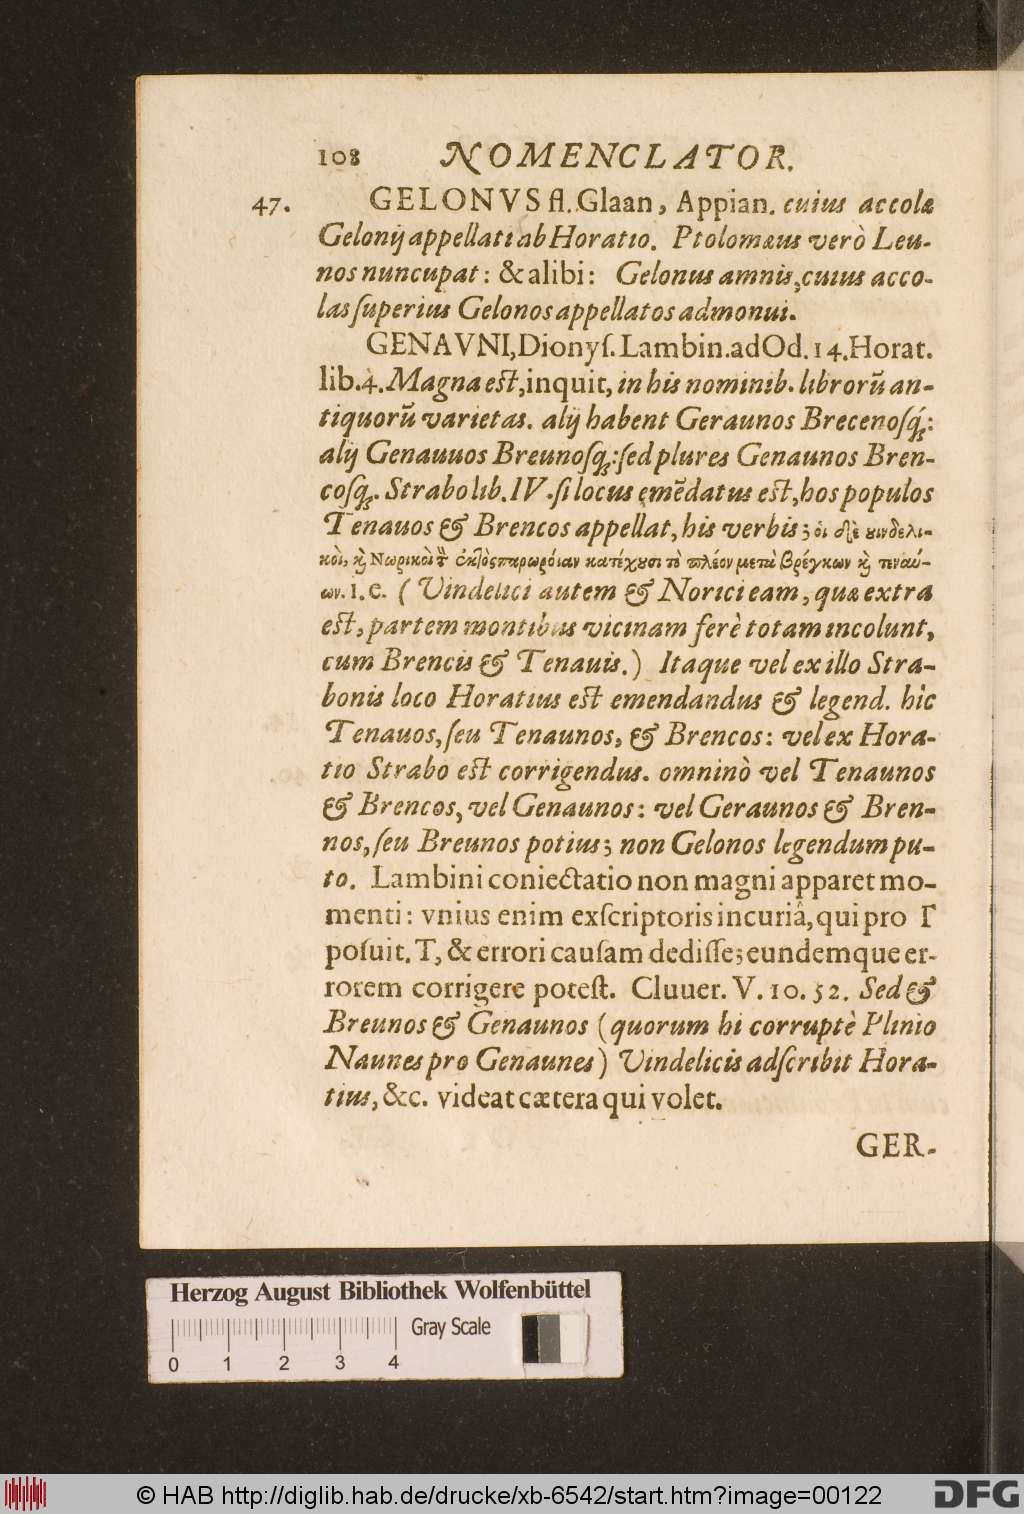 108 NOMENCLATOR.
47. GELONVS fl. Glaan, Appian. cuius accolæ
Gelonij appellati ab Horatio. Ptolomæus verò Leu-
nos nuncupat: & alibi: Gelonus amnis, cuius acco-
las ſuperius Gelonos appellatos admonui.
GENAVNI, Dionyſ. Lambin. ad Od. 14. Horat.
lib. 4. Magna eſt, inquit, in his nominib. librorū an-
tiquorū varietas. alij habent Geraunos Brecenoſq́;:
alij Genauuos Breunoſq;: ſed plures Genaunos Bren-
coſq;. Strabo lib. IV. ſi locus emēdatus eſt, hos populos
Tenauos & Brencos appellat, his verbis; ὁι δὲ ȣινδελι-
κὸι, κὴ Νωρικὸι τ̃ ἐκτὸς παρωρόιαν κατέχȣσι τὸ πλέον μετὰ βρέγκων κὴ τεναύ-
ων. i. e. (Vindelici autem & Norici eam, quæ extra
eſt, partem montibus vicinam ferè totam incolunt,
cum Brencis & Tenauis.) Itaque vel ex illo Stra-
bonis loco Horatius eſt emendandus & legend. hìc
Tenauos, ſeu Tenaunos, & Brencos: vel ex Hora-
tio Strabo eſt corrigendus. omninò vel Tenaunos
& Brencos, vel Genaunos: vel Geraunos & Bren-
nos, ſeu Breunos potius; non Gelonos legendum pu-
to. Lambini coniectatio non magni apparet mo-
menti: vnius enim exſcriptoris incuriâ, qui pro Γ
poſuit. T, & errori cauſam dediſſe; eundemque er-
rorem corrigere poteſt. Cluuer. V. 10. 52. Sed &
Breunos & Genaunos (quorum hi corruptè Plinio
Naunes pro Genaunes) Vindelicis adſcribit Hora-
tius, &c. videat cætera qui volet.
GER-
Herzog August Bibliothek Wolfenbüttel
0 1 2 3 4 Gray Scale
© HAB http://diglib.hab.de/drucke/xb-6542/start.htm?image=00122 DFG